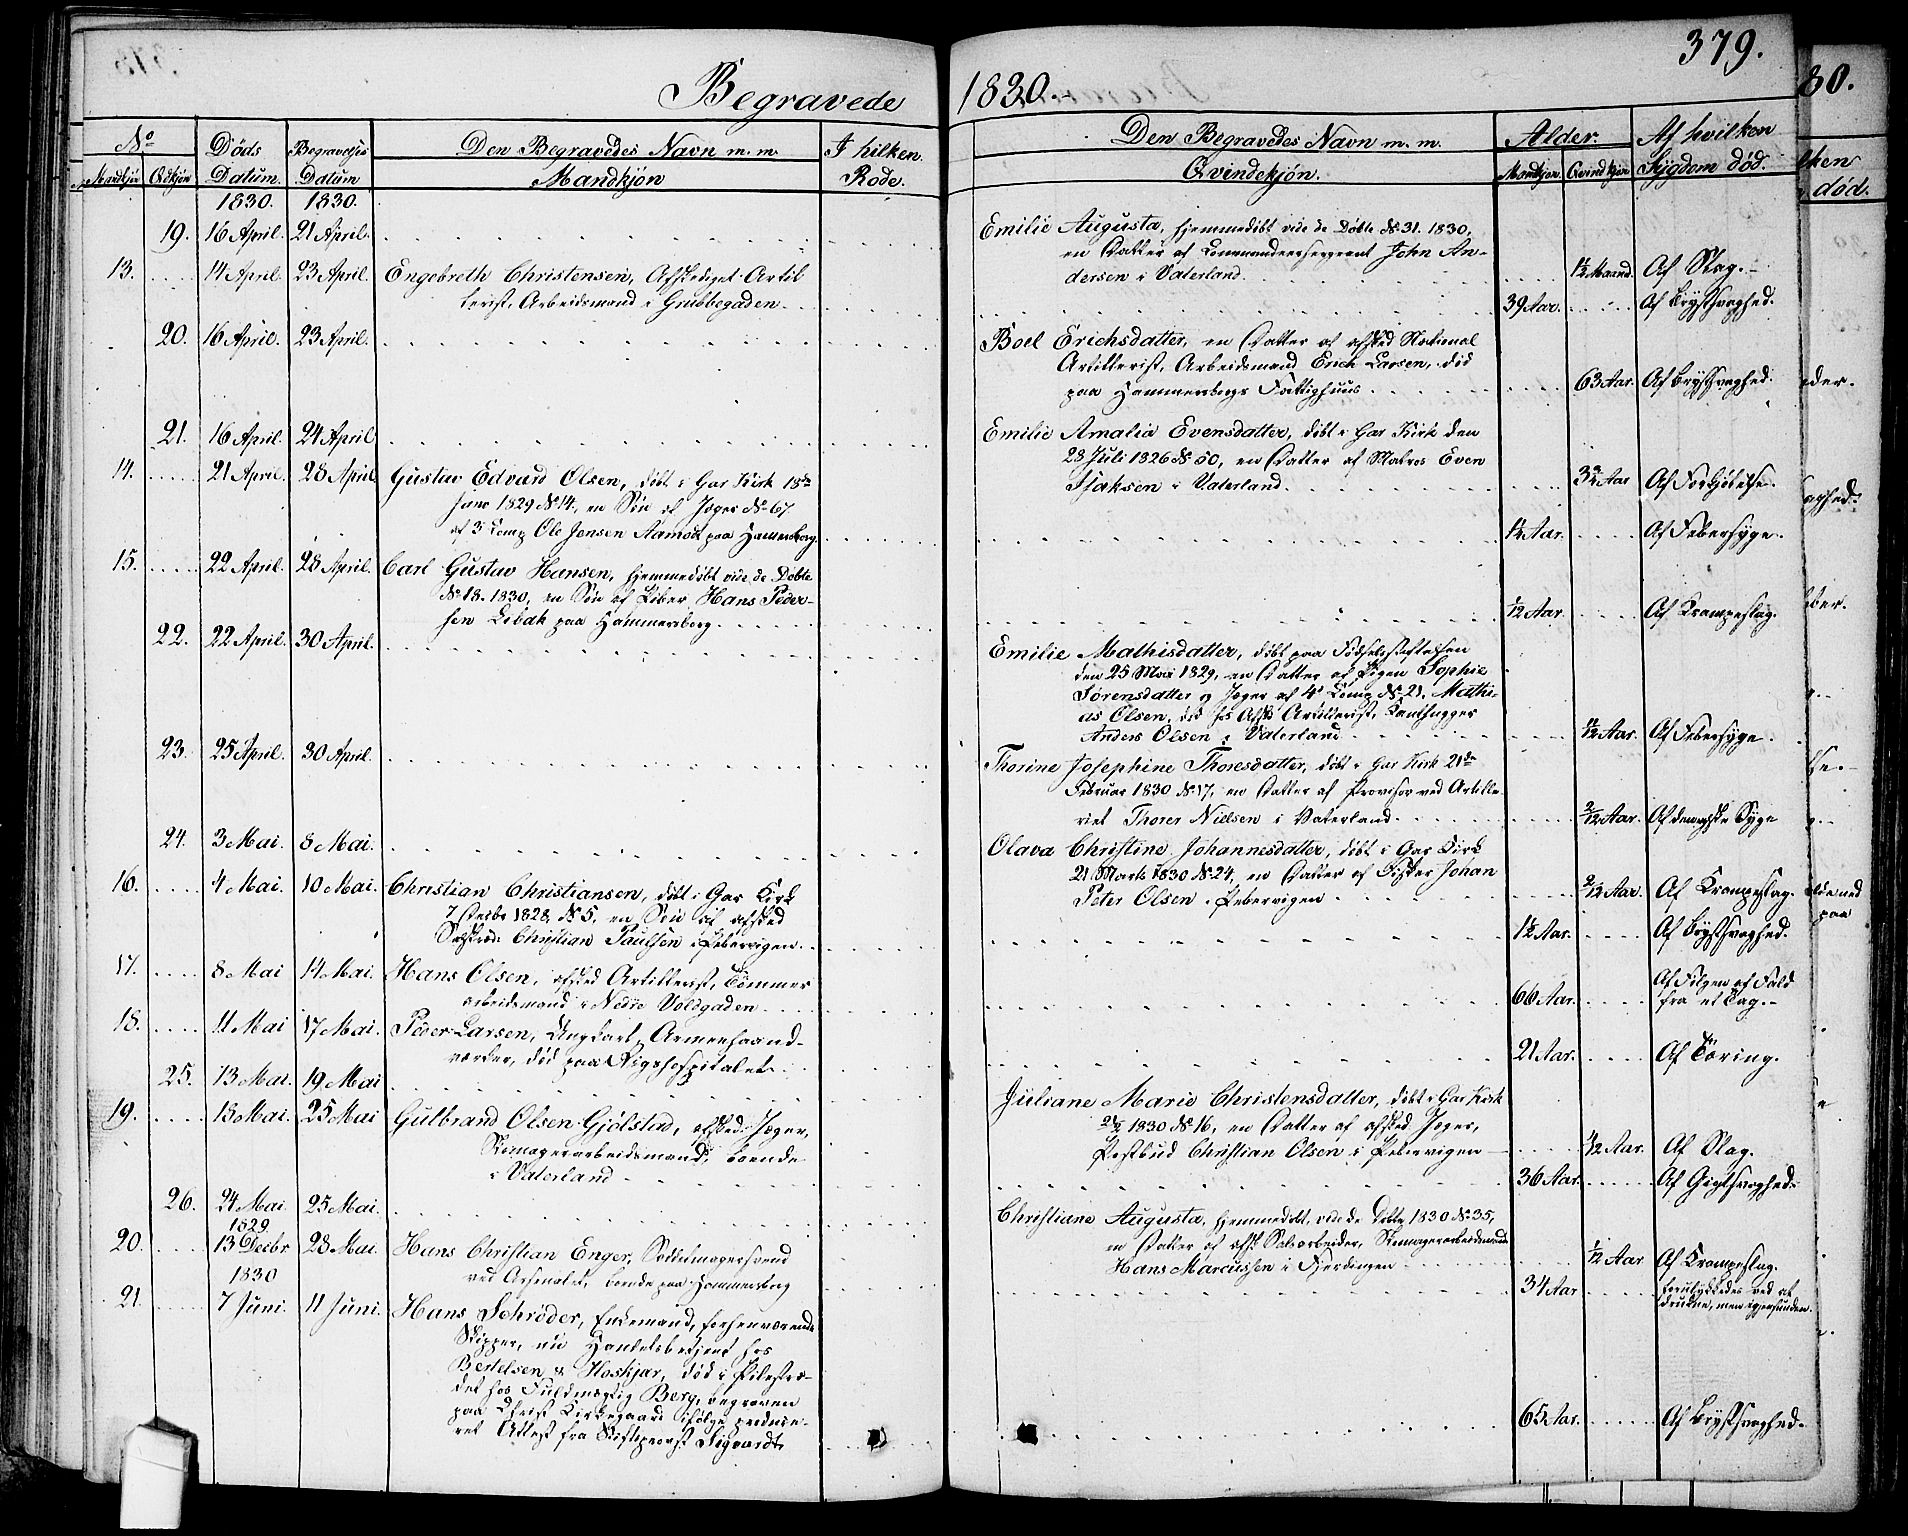 Begravede
No
Mandkjön Qvdkjön
Döds Datum.
Begravelses Datum
Den Begravedes Navn m. m.
Mandkjön
I hilken.
Rode.
1830. 1830.
19. 16 April. 21 April.
13. 14 April. 23 April. Engebreth Christensen, Afskediget Artil
lerist, Arbeidsmand i Grubbegaden
20. 16 April. 23 April.
21. 16 April. 24 April
14. 21 April. 28 April Gustav Edvard Olsen, döbt i Gar Kirk 15de
1829 No 14, en Sön af Jæger No 67
af 3 Comp Ole Jensen Aamodt paa Hammersborg.
15. 22 April. 28 April. Carl Gustav Hansen, hjemmedöbt vide de Döbte
No 18. 1830, en Sön af Hans Peder-
sen Libak paa Hammersborg
22. 22 April. 30 April.
23. 25 April. 30 April.
24. 3 Mai. 8 Mai.
16. 4 Mai. 10 Mai. Christian Christiansen, döbt i Gar Kirk
7 Decbr 1828, No 5, en Sön af afsked
Christian Paulsen i Pebervigen
17. 8 Mai 14 Mai. Hans Olsen, afsked Artillerist, Tömmer
arbeidsmand i Nedre Voldgaden
18. 11 Mai 17 Mai. Peder Larsen, Ungkarl, Armeehaand-
værker, död paa Rigshospitalet
25. 13 Mai. 19 Mai
19. 15 Mai. 25 Mai Gulbrand Olsen Gjölstad, afsked: Jæger,
Skomagerarbeidsmand, boende
i Vaterland
26. 24 Mai 25 Mai.
1829
20. 13 Decbr 28 Mai. Hans Christian Enger, Sadelmagersvend
ved Arsenalet, boende paa Hammersborg
1830
21. 7 Juni. 11 Juni. Hans Schröder, Enkemand, forhenværende
Skipper, nu Handelsbetjent hos
Bertelsen & Hoskjar, död i Pilestræ-
det hos Fuldmægtig Berg, begraven
paa Christ Kirkegaard ifölge produce-
ret Attest fra Stiftsprovst Sigvardt
1830.
379.
Den Begravedes Navn m. m.
Qvindekjön.
Alder.
Mandkjön. Qvindkjön
Af hvilken
Sygdom död.
Emilie Augusta, hjemmedöbt vide de Döbte No 31. 1830,
en Datter af Commandeersergeant John An-
dersen i Vaterland 1½ Maand. Af Slag.
39 Aar. Af Brystsvaghed.
Boel Erichsdatter, en Datter af afsked National
Artillerist, Arbeidsmand Erich Larsen, död
paa Hammersborgs Fattighuus 63 Aar. Af Brystsvaghed.
Emilie Amalia Evensdatter, döbt i Gar Kirk den
28 Juli 1826 No 50, en Datter af Matros Even
Isaksen i Vaterland 3¾ Aar Af Forkjölelse
1¼ Aar. Af Febersyge.
1/12 Aar. Af Krampeslag.
Emilie Mathisdatter, döbt paa Födselsstiftelsen
den 25 Mai 1829, en Datter af Pigen Sophie
Sörensdatter og Jæger af 4de Comp No 21. Mathi-
as Olsen, död hos Afsk: Artillerist,
Anders Olsen i Vaterland 11/12 Aar. Af Febersyge
Thorine Josephine Thoresdatter, döbt i Gar Kirk 21de
Februar 1830 No 17, en Datter af Provisor ved Artille-
riet Thorer Nielsen i Vaterland 2/12 Aar. Af Syge
Olava Christine Johannesdatter, döbt i Gar Kirk
21 Marts 1830 No 24, en Datter af Fisker Johan
Peter Olsen i Pebervigen 2/12 Aar. Af Krampeslag.
1½ Aar. Af Brystsvaghed.
66 Aar. Af Fölgen af Fald
fra et Tag.
21 Aar. Af Tæring.
Juliane Marie Christensdatter, döbt i Gar Kirk
1830 No 16, en Datter af afsked Jæger,
Postbud Christian Olsen i Pebervigen 4/12 Aar. Af Slag.
36 Aar. Af Gigtsvaghed.
Christiane Augusta, hjemmedöbt vide de Döbte 1830 No 35,
en Datter af afsk Skomagerarbeidsmand
Hans Marcussen i Fjerdingen 1/12 Aar Af Krampeslag.
34 Aar forulykkedes ved at
drukne, men igjenfunden.
65 Aar. Af Brystsvaghed.
80.
lken
död.